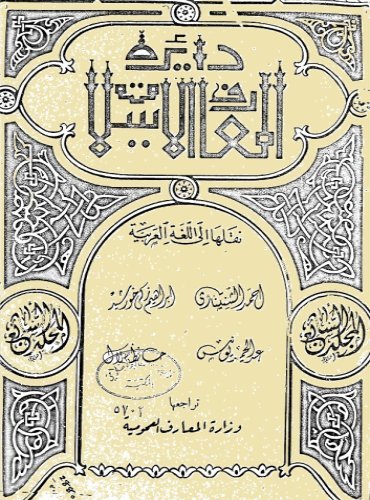 دائرة
المعارف الإسلامية
نقلها إلى اللغة العربية
أحمد الشنتناوي
إبراهيم زكي خورشيد
عبد الحميد يونس
حافظ جلال
المجلد السابع
المجلد السابع
المكتبة
تراجعها
وزارة المعارف العمومية